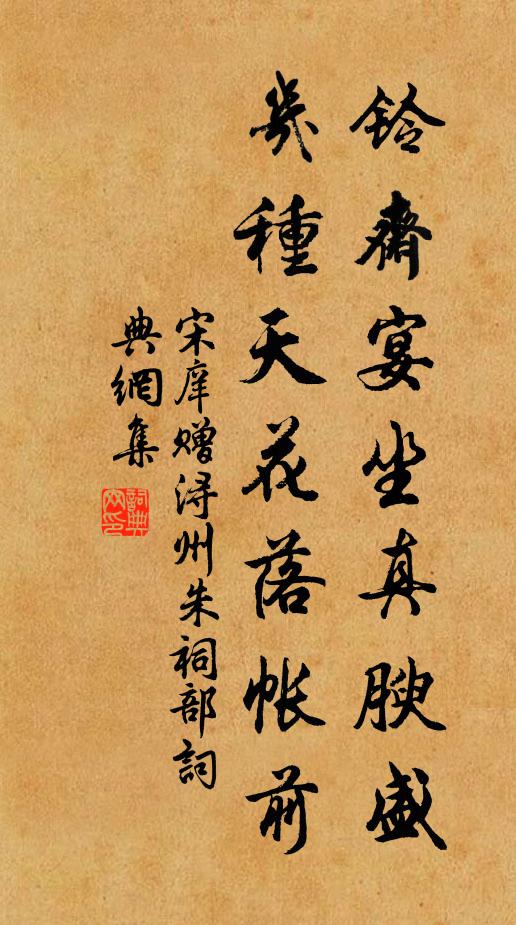 鈴齋宴坐真腴盛
幾種天花落帳前
宋庠贈潯州朱祠部詞
典網集
詞典網印